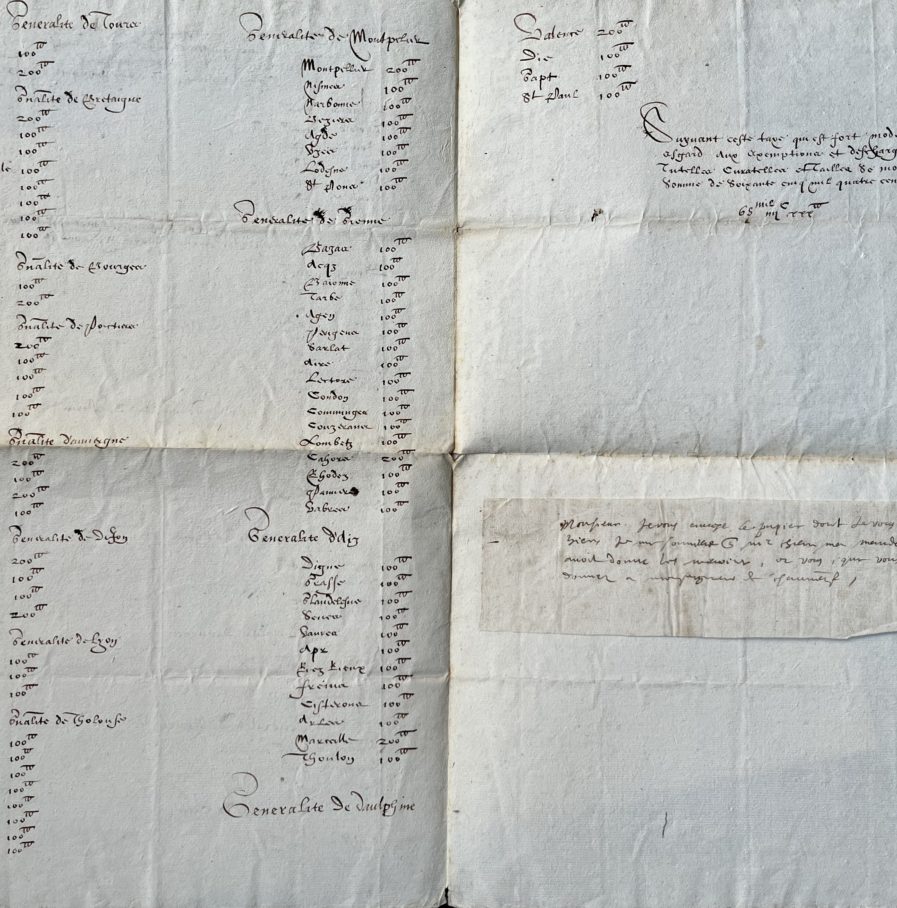 Generalité de Tours
100 tt
200 tt
Gnalité de Bretaigne
200 tt
100 tt
100 tt
100 tt
100 tt
100 tt
100 tt
100 tt
Gnalité de Bourges
100 tt
200 tt
Gnalité de Poictiers
200 tt
100 tt
100 tt
100 tt
100 tt
Gnalité dauvergne
200 tt
100 tt
200 tt
100 tt
Generalité de dijon
200 tt
100 tt
100 tt
200 tt
Generalité de Lyon
100 tt
100 tt
100 tt
Gnalité de Tholouse
100 tt
100 tt
100 tt
100 tt
100 tt
100 tt
100 tt
100 tt
Generalité de Montpellier
Montpellier 200 tt
Nismes 100 tt
Narbonne 100 tt
Beziers 100 tt
Agde 100 tt
Uzes 100 tt
Lodesve 100 tt
St Pons 100 tt
Generalité de
Bazas 100 tt
Acqz 100 tt
Baionne 100 tt
Tarbe 100 tt
Agen 100 tt
100 tt
Sarlat 100 tt
Aire 100 tt
Lectore 100 tt
Condon 100 tt
Comminges 100 tt
Conzerans 100 tt
Lombetz 100 tt
Cahors 200 tt
Rhodez 100 tt
Pamiers 100 tt
Vabres 100 tt
Generalité d'Aix
Digne 100 tt
Grasse 100 tt
Glandesve 100 tt
Senes 100 tt
Vances 100 tt
Apt 100 tt
Riez Rieux 100 tt
freius 100 tt
Cisteron 100 tt
Arles 100 tt
Marcelle 200 tt
Thoulon 100 tt
Generalité de daulphine
Valence 200 tt
Die 100 tt
100 tt
St Paul 100 tt
Suyvant ceste taxe qui est fort mod
esgard aux exemptions et descharg
Tutelles Curatelles et Tailles Se mo
Somme de Soixante cinq mil quatre cen
65 mil iiii c xxx tt
Monsieur Je vous envoye le papier dont Je vous
avoit donne, or vous
donner a monseigneur le